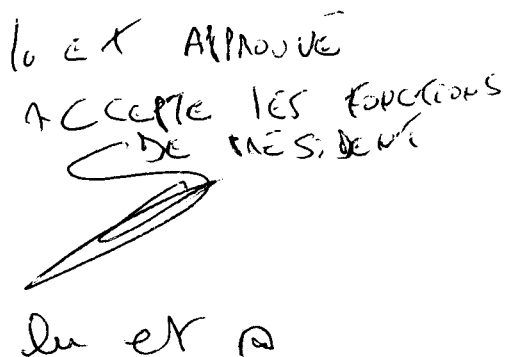 lu et APPROUVÉ
ACCEPTE LES FONCTIONS
DE PRÉSIDENT
lu et a